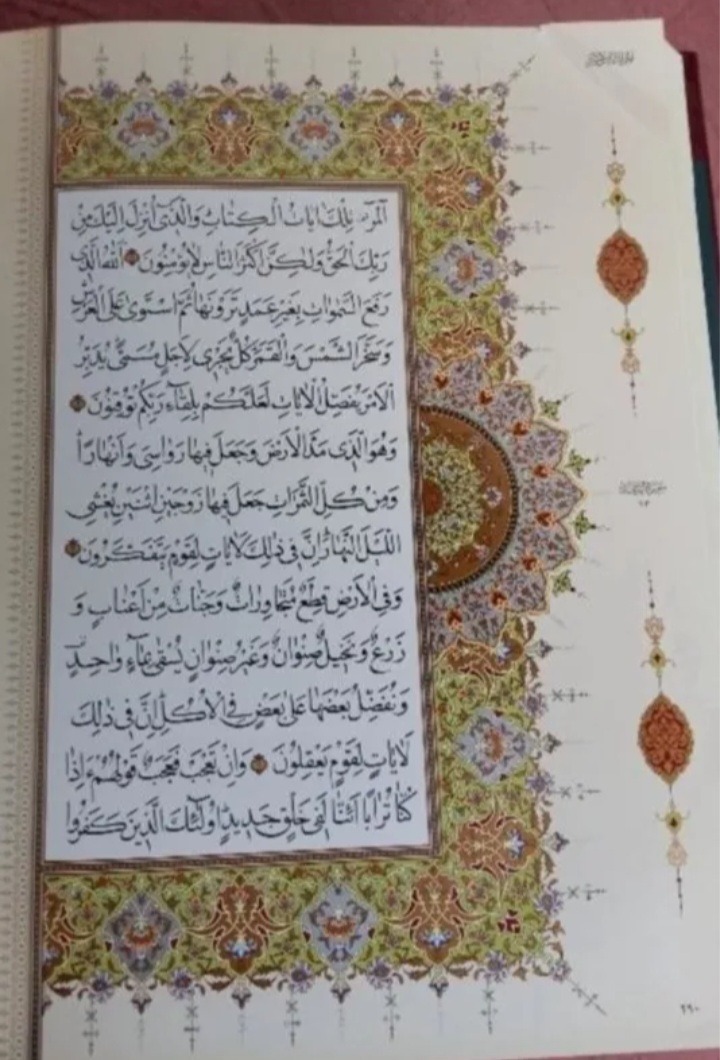 الٓمٓرٰ تِلْكَ اٰيَاتُ الْكِتَابِ وَالَّذٖٓى اُنْزِلَ اِلَيْكَ مِنْ
رَبِّكَ الْحَقُّ وَلٰكِنَّ اَكْثَرَ النَّاسِ لَا يُؤْمِنُونَ اَللّٰهُ الَّذٖى
رَفَعَ السَّمٰوَاتِ بِغَيْرِ عَمَدٍ تَرَوْنَهَا ثُمَّ اسْتَوٰى عَلَى الْعَرْشِ
وَسَخَّرَ الشَّمْسَ وَالْقَمَرَ كُلٌّ يَجْرٖى لِاَجَلٍ مُسَمًّى يُدَبِّرُ
الْاَمْرَ يُفَصِّلُ الْاٰيَاتِ لَعَلَّكُمْ بِلِقَٓاءِ رَبِّكُمْ تُوقِنُونَ
وَهُوَ الَّذٖى مَدَّ الْاَرْضَ وَجَعَلَ فٖيهَا رَوَاسِىَ وَاَنْهَارًا
وَمِنْ كُلِّ الثَّمَرَاتِ جَعَلَ فٖيهَا زَوْجَيْنِ اثْنَيْنِ يُغْشِى
الَّيْلَ النَّهَارَ اِنَّ فٖى ذٰلِكَ لَاٰيَاتٍ لِقَوْمٍ يَتَفَكَّرُونَ
وَفِى الْاَرْضِ قِطَعٌ مُتَجَاوِرَاتٌ وَجَنَّاتٌ مِنْ اَعْنَابٍ وَ
زَرْعٌ وَنَخٖيلٌ صِنْوَانٌ وَغَيْرُ صِنْوَانٍ يُسْقٰى بِمَٓاءٍ وَاحِدٍ
وَنُفَضِّلُ بَعْضَهَا عَلٰى بَعْضٍ فِى الْاُكُلِ اِنَّ فٖى ذٰلِكَ
لَاٰيَاتٍ لِقَوْمٍ يَعْقِلُونَ وَاِنْ تَعْجَبْ فَعَجَبٌ قَوْلُهُمْ ءَاِذَا
كُنَّا تُرَابًا اَئِنَّا لَفٖى خَلْقٍ جَدٖيدٍ اُولٰٓئِكَ الَّذٖينَ كَفَرُوا